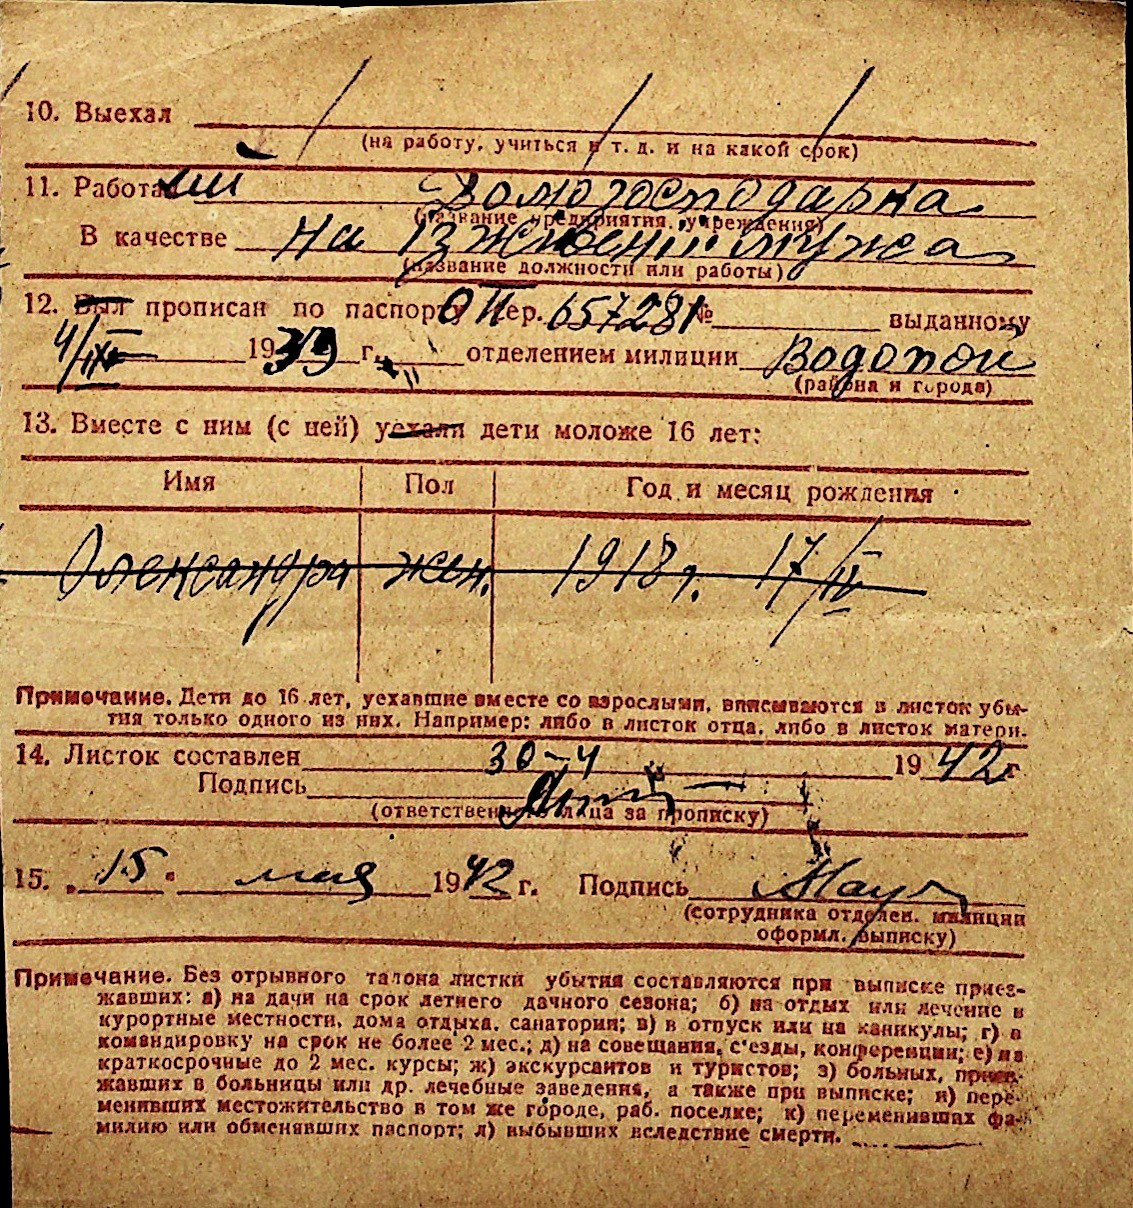 10. Выехал
(на работу, учиться и т. д. и на какой срок)
11. Работал домогосподарка
(название предприятия, учреждения)
В качестве На іждивении мужа
(название должности или работы)
12. Был прописан по паспорту сер. 657281 № выданному
4/IX 1939 г. отделением милиции Водопой
(района и города)
13. Вместе с ним (с ней) уехали дети моложе 16 лет:
Имя Пол Год и месяц рождения
Олександра жен. 1918 г. 17/IV
Примечание. Дети до 16 лет, уехавшие вместе со взрослыми, вписываются в листок убы-
тия только одного из них. Например: либо в листок отца, либо в листок матери.
14. Листок составлен 30-4 1942 г
Подпись
(ответственного лица за прописку)
15. „15" мая 1942 г. Подпись
(сотрудника отделен. милиции
оформл. выписку)
Примечание. Без отрывного талона листки убытия составляются при выписке приез-
жавших: а) на дачи на срок летнего дачного сезона; б) на отдых или лечение в
курортные местности, дома отдыха, санатории; в) в отпуск или на каникулы; г) в
командировку на срок не более 2 мес.; д) на совещания, с'езды, конференции; е) на
краткосрочные до 2 мес. курсы; ж) экскурсантов и туристов; з) больных, приез-
жавших в больницы или др. лечебные заведения, а также при выписке; и) пере-
менивших местожительство в том же городе, раб. поселке; к) переменивших фа-
милию или обменявших паспорт; л) выбывших вследствие смерти.